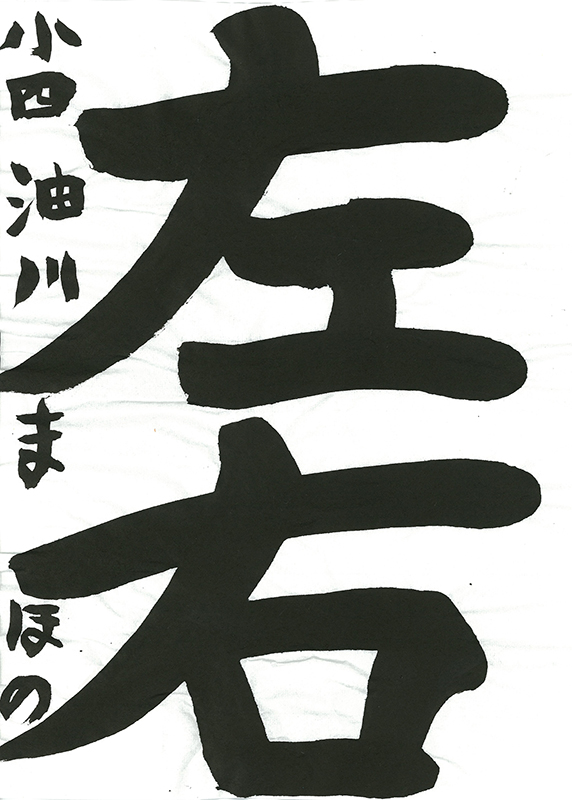 左右
小四 油川 まほの